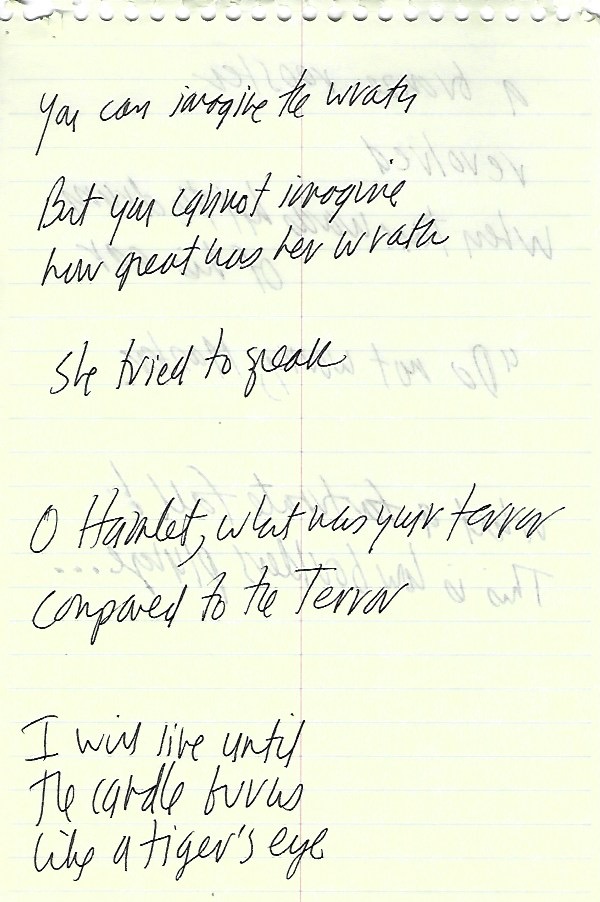 You can imagine the wrath
But you cannot imagine
how great was her wrath
She tried to speak
O Hamlet, what was your terror
compared to the Terror
I will live until
the candle burns
like a tiger's eye